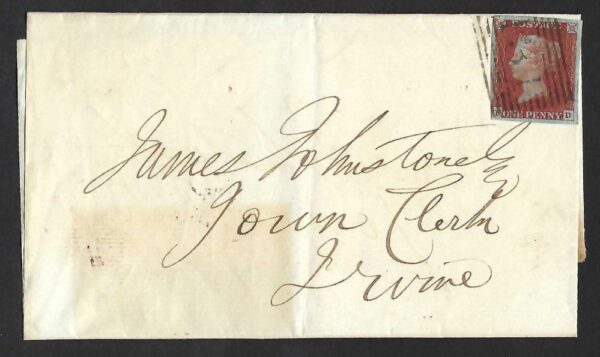 POSTAGE
ONE PENNY D
James Johnstone Esq
Town Clerk
Irvine